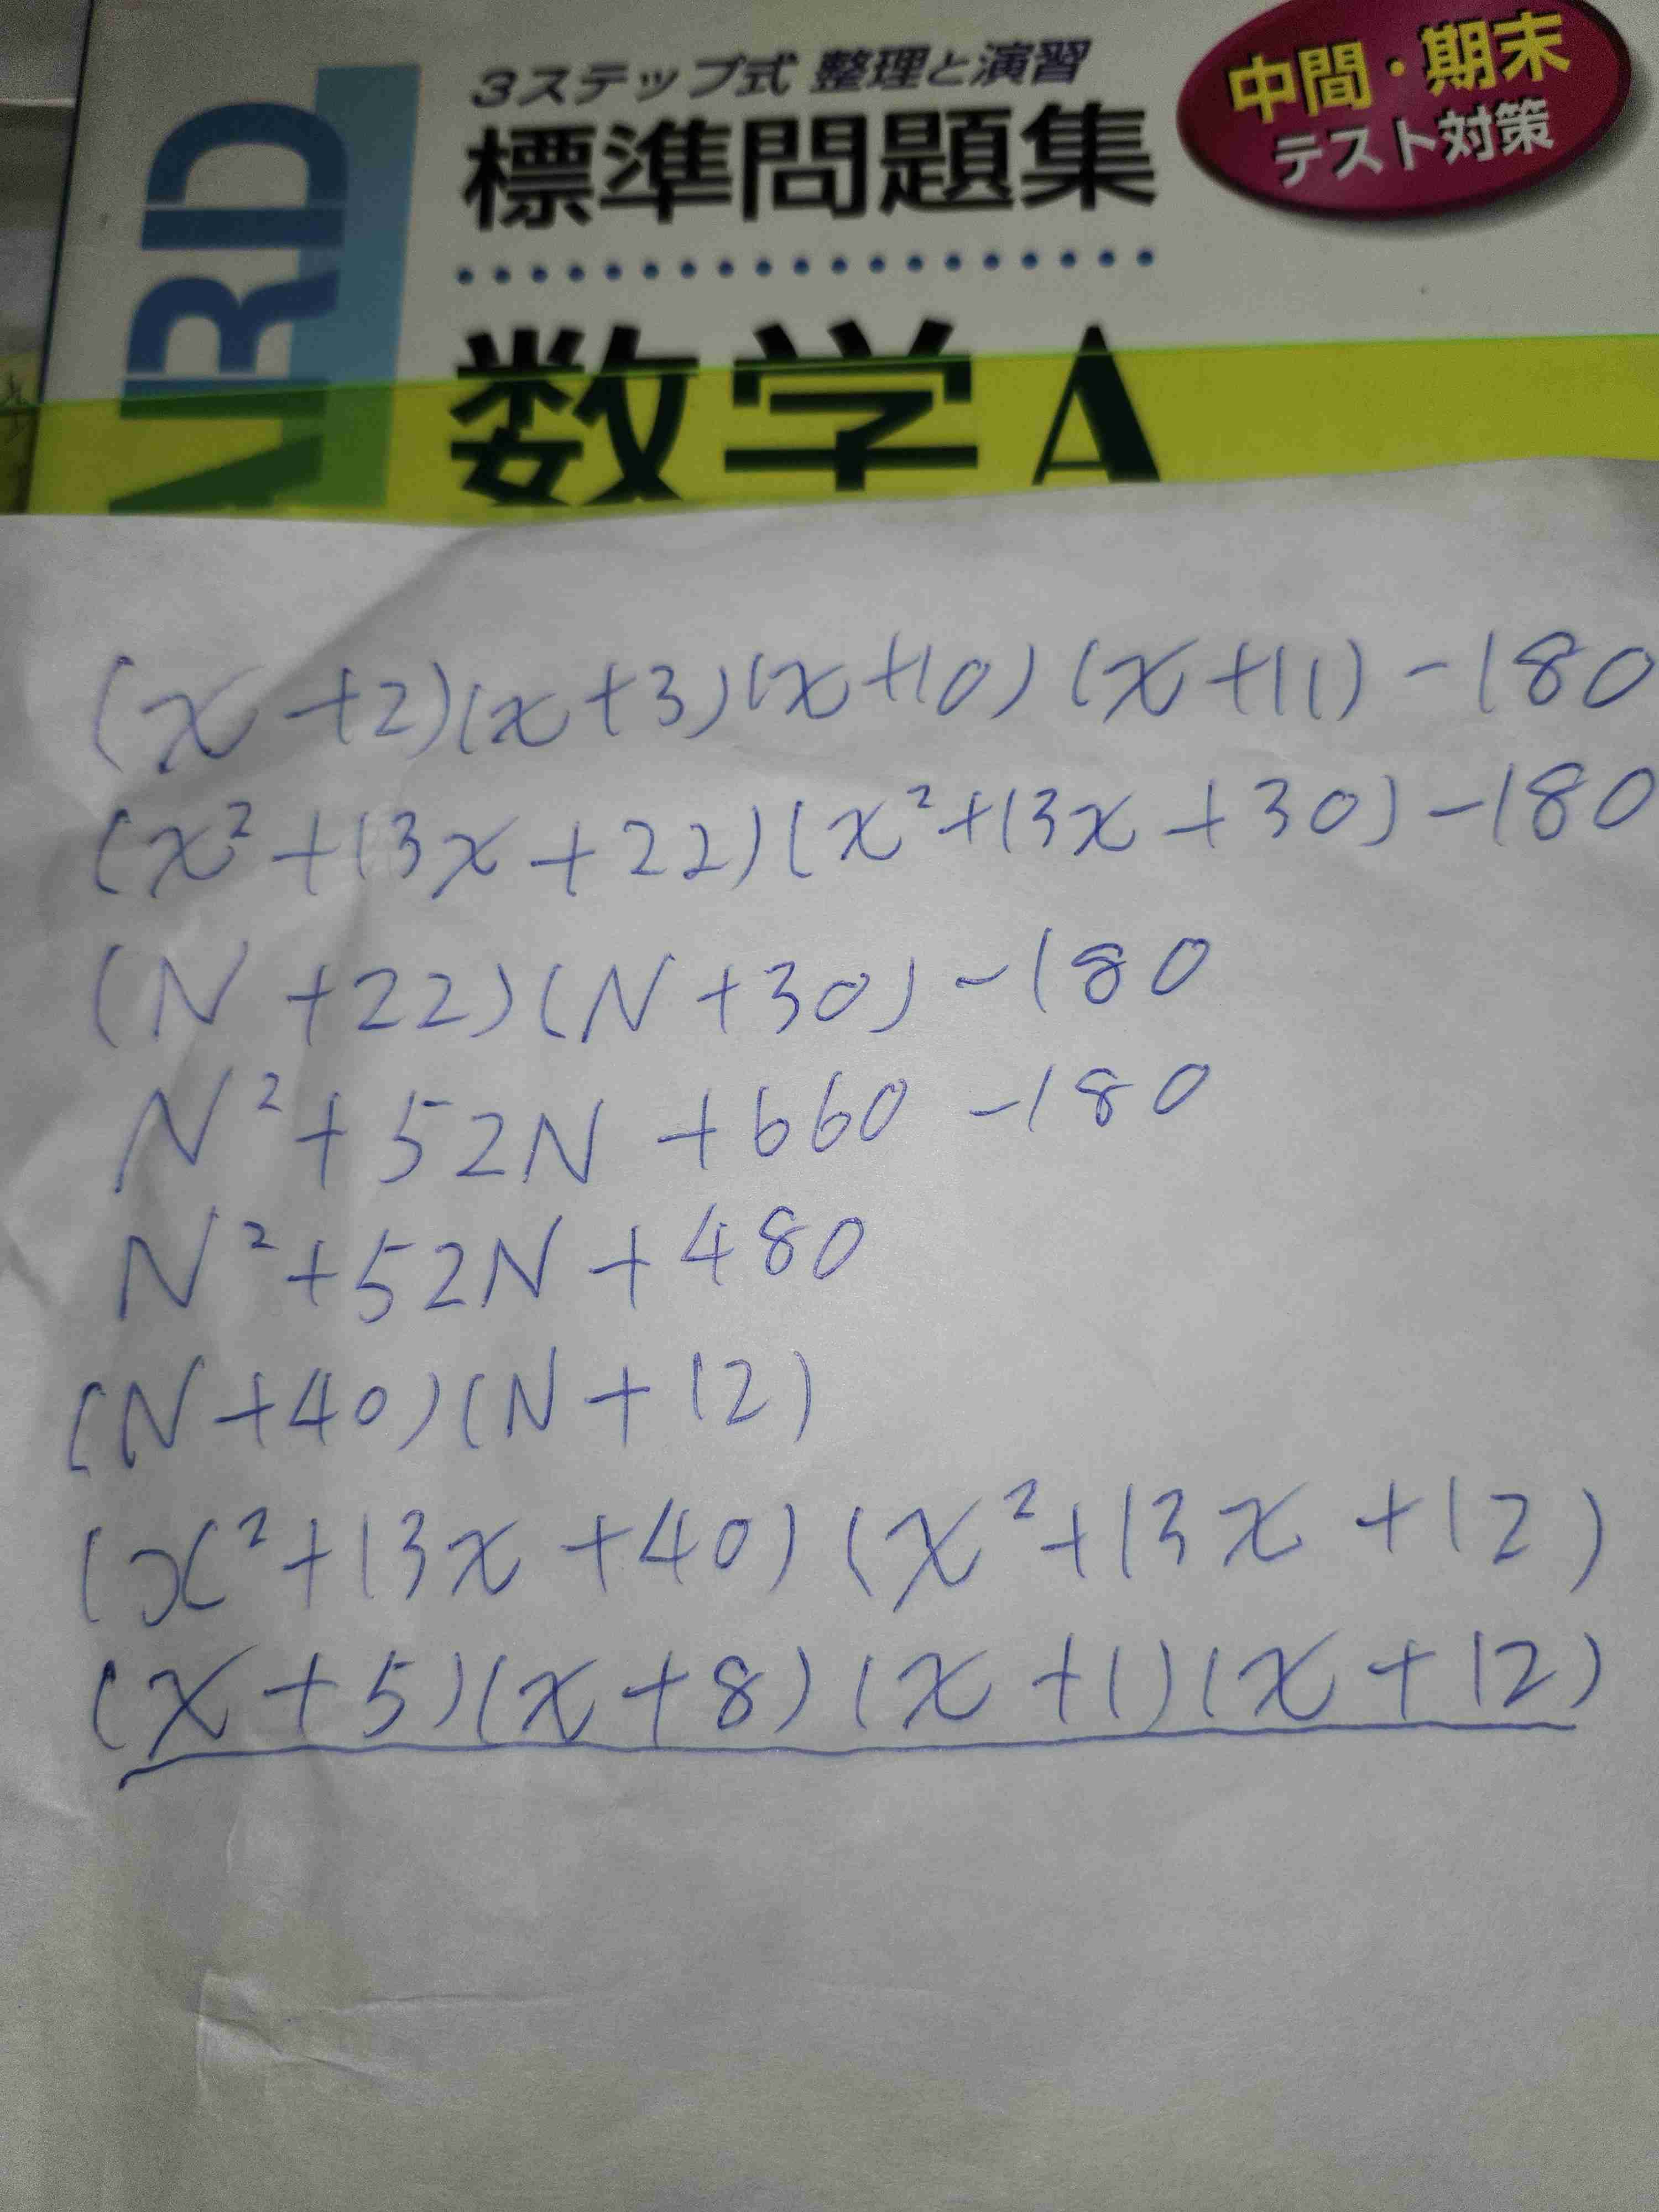 3ステップ式 整理と演習
中間・期末
テスト対策
標準問題集
ARD
数学A
(x+2)(x+3)(x+10)(x+11)-180
(x²+13x+22)(x²+13x+30)-180
(N+22)(N+30)-180
N²+52N+660-180
N²+52N+480
(N+40)(N+12)
(x²+13x+40)(x²+13x+12)
(x+5)(x+8)(x+1)(x+12)